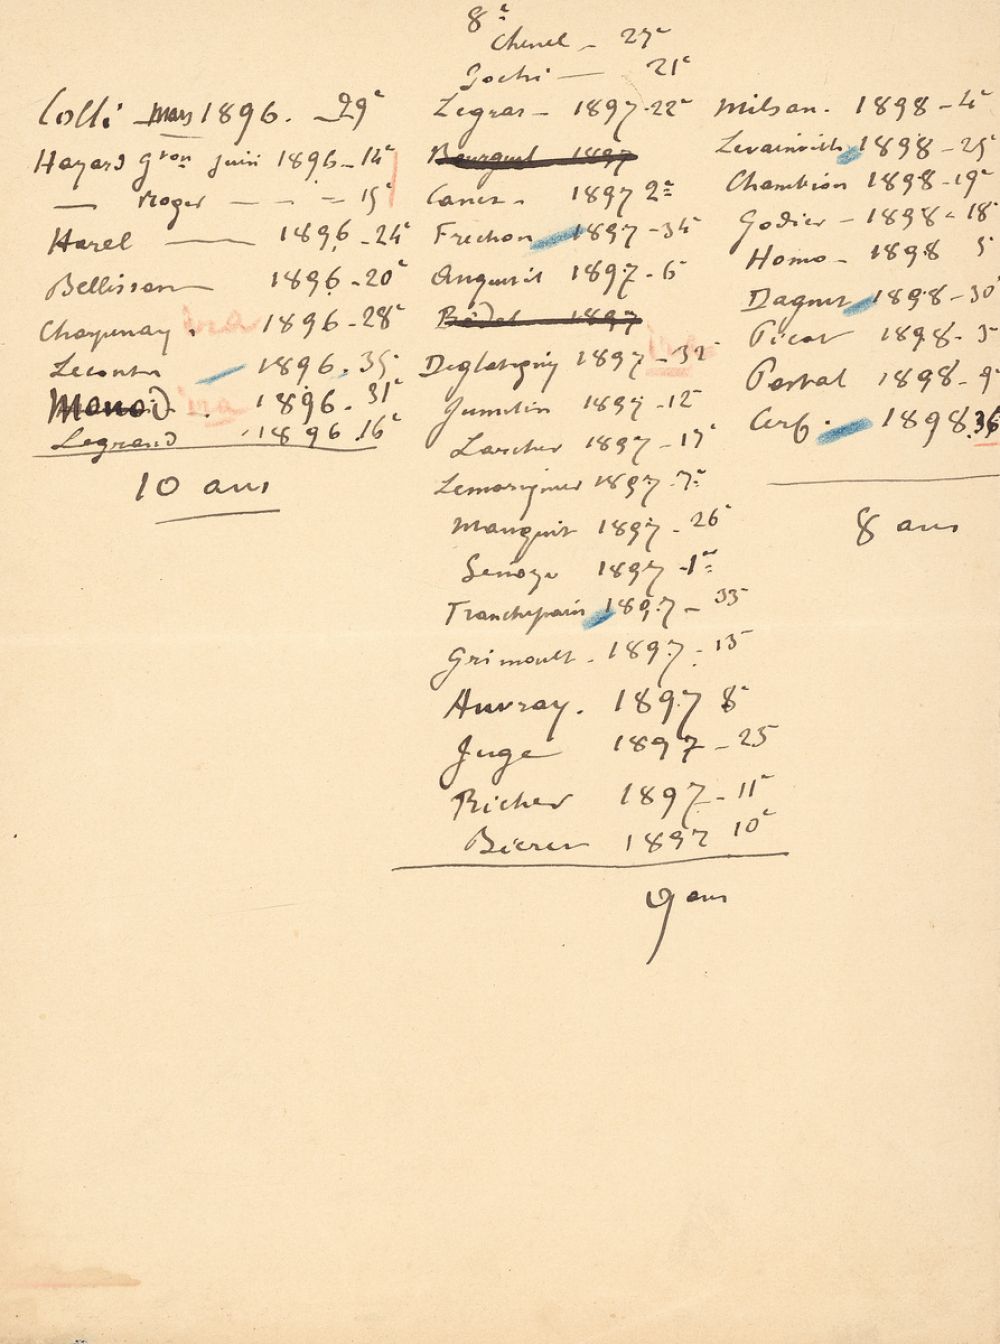 8e
Chenel - 27e
Jochi — 21e
Colli Mars 1896. - 29e
Hazard Gton juin 1896 - 14e
— Roger — - = 15e
Harel — 1896 - 24e
Bellissen — 1896 - 20e
Chapunay. 1896 - 28e
Lecomte 1896. 35e
Monod. 1896. 31e
Legrand 1896. 16e
10 ans
Legras - 1897 - 22e
Bourguel 1897
Canet - 1897 2e
Frechon 1897 - 34e
Anquetil 1897 - 6e
Bédel 1897
Deglatigny 1897 - 32e
Jumelin 1897 - 12e
Larcher 1897 - 17e
Lemarignier 1897 - 7e
Mauguit 1897 - 26e
Senoze 1897 - 1e
Tranchepain 1897 - 33e
Grimoult - 1897 - 13e
Auvray. 1897 8e
Juge 1897 - 25
Richer 1897 - 11e
Bieren 1897 10e
9 ans
Milsan. 1898 - 4e
Levainville 1898 - 25e
Chambion 1898 - 19e
Godier - 1898 - 18e
Homo - 1898 5e
Dagnet 1898 - 30e
Picot 1898 - 3e
Portal 1898 - 9e
Cerf. 1898. 36
8 ans